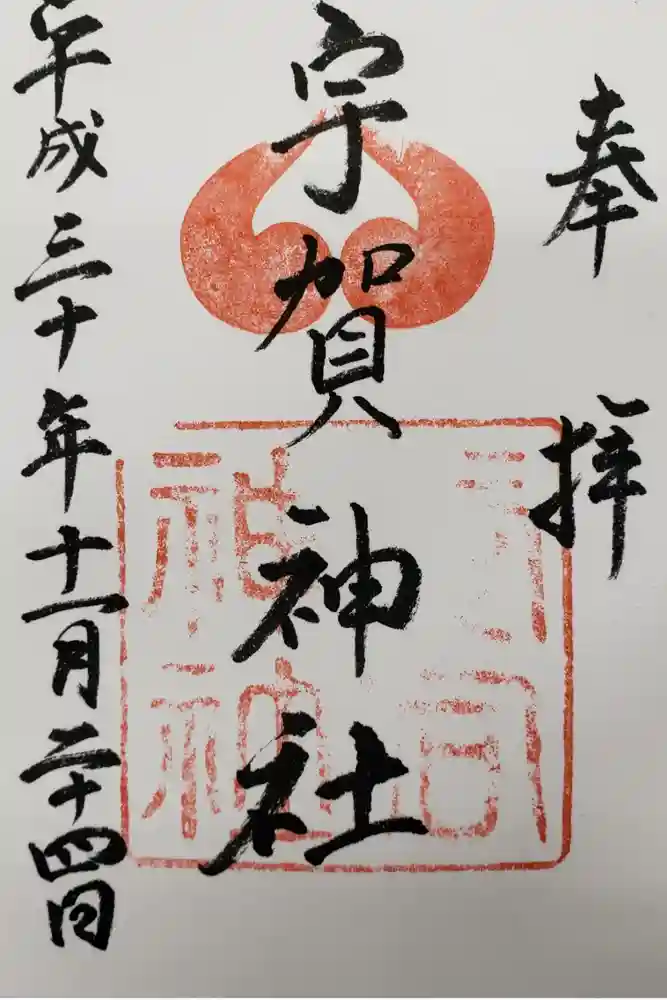 奉拝
宇賀神社
平成三十年十一月二十四日